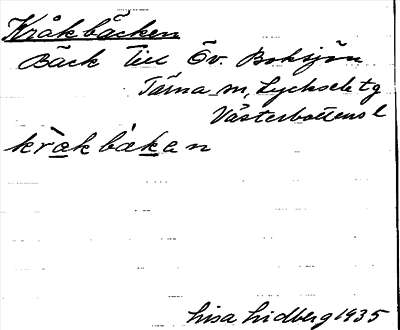 Kråkbäcken
Bäck till Öv. Boksjön
Tärna sn, Lycksele tg
Västerbottens l
kråkbäkan
Lisa Lidberg 1935